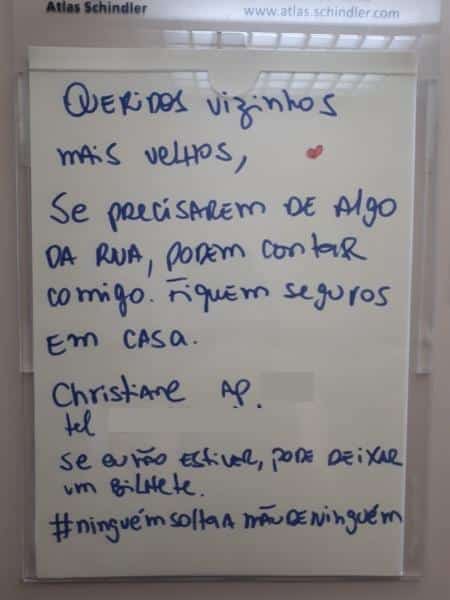 Atlas Schindler
www.atlas.schindler.com
QUERIDOS vizinhos
mais velhos,
Se precisarem de algo
da rua, podem contar
comigo. Fiquem seguros
em casa.
Christiane AP.
tel
se eu não estiver, pode deixar
um bilhete.
#ninguém solta a mão de ninguém